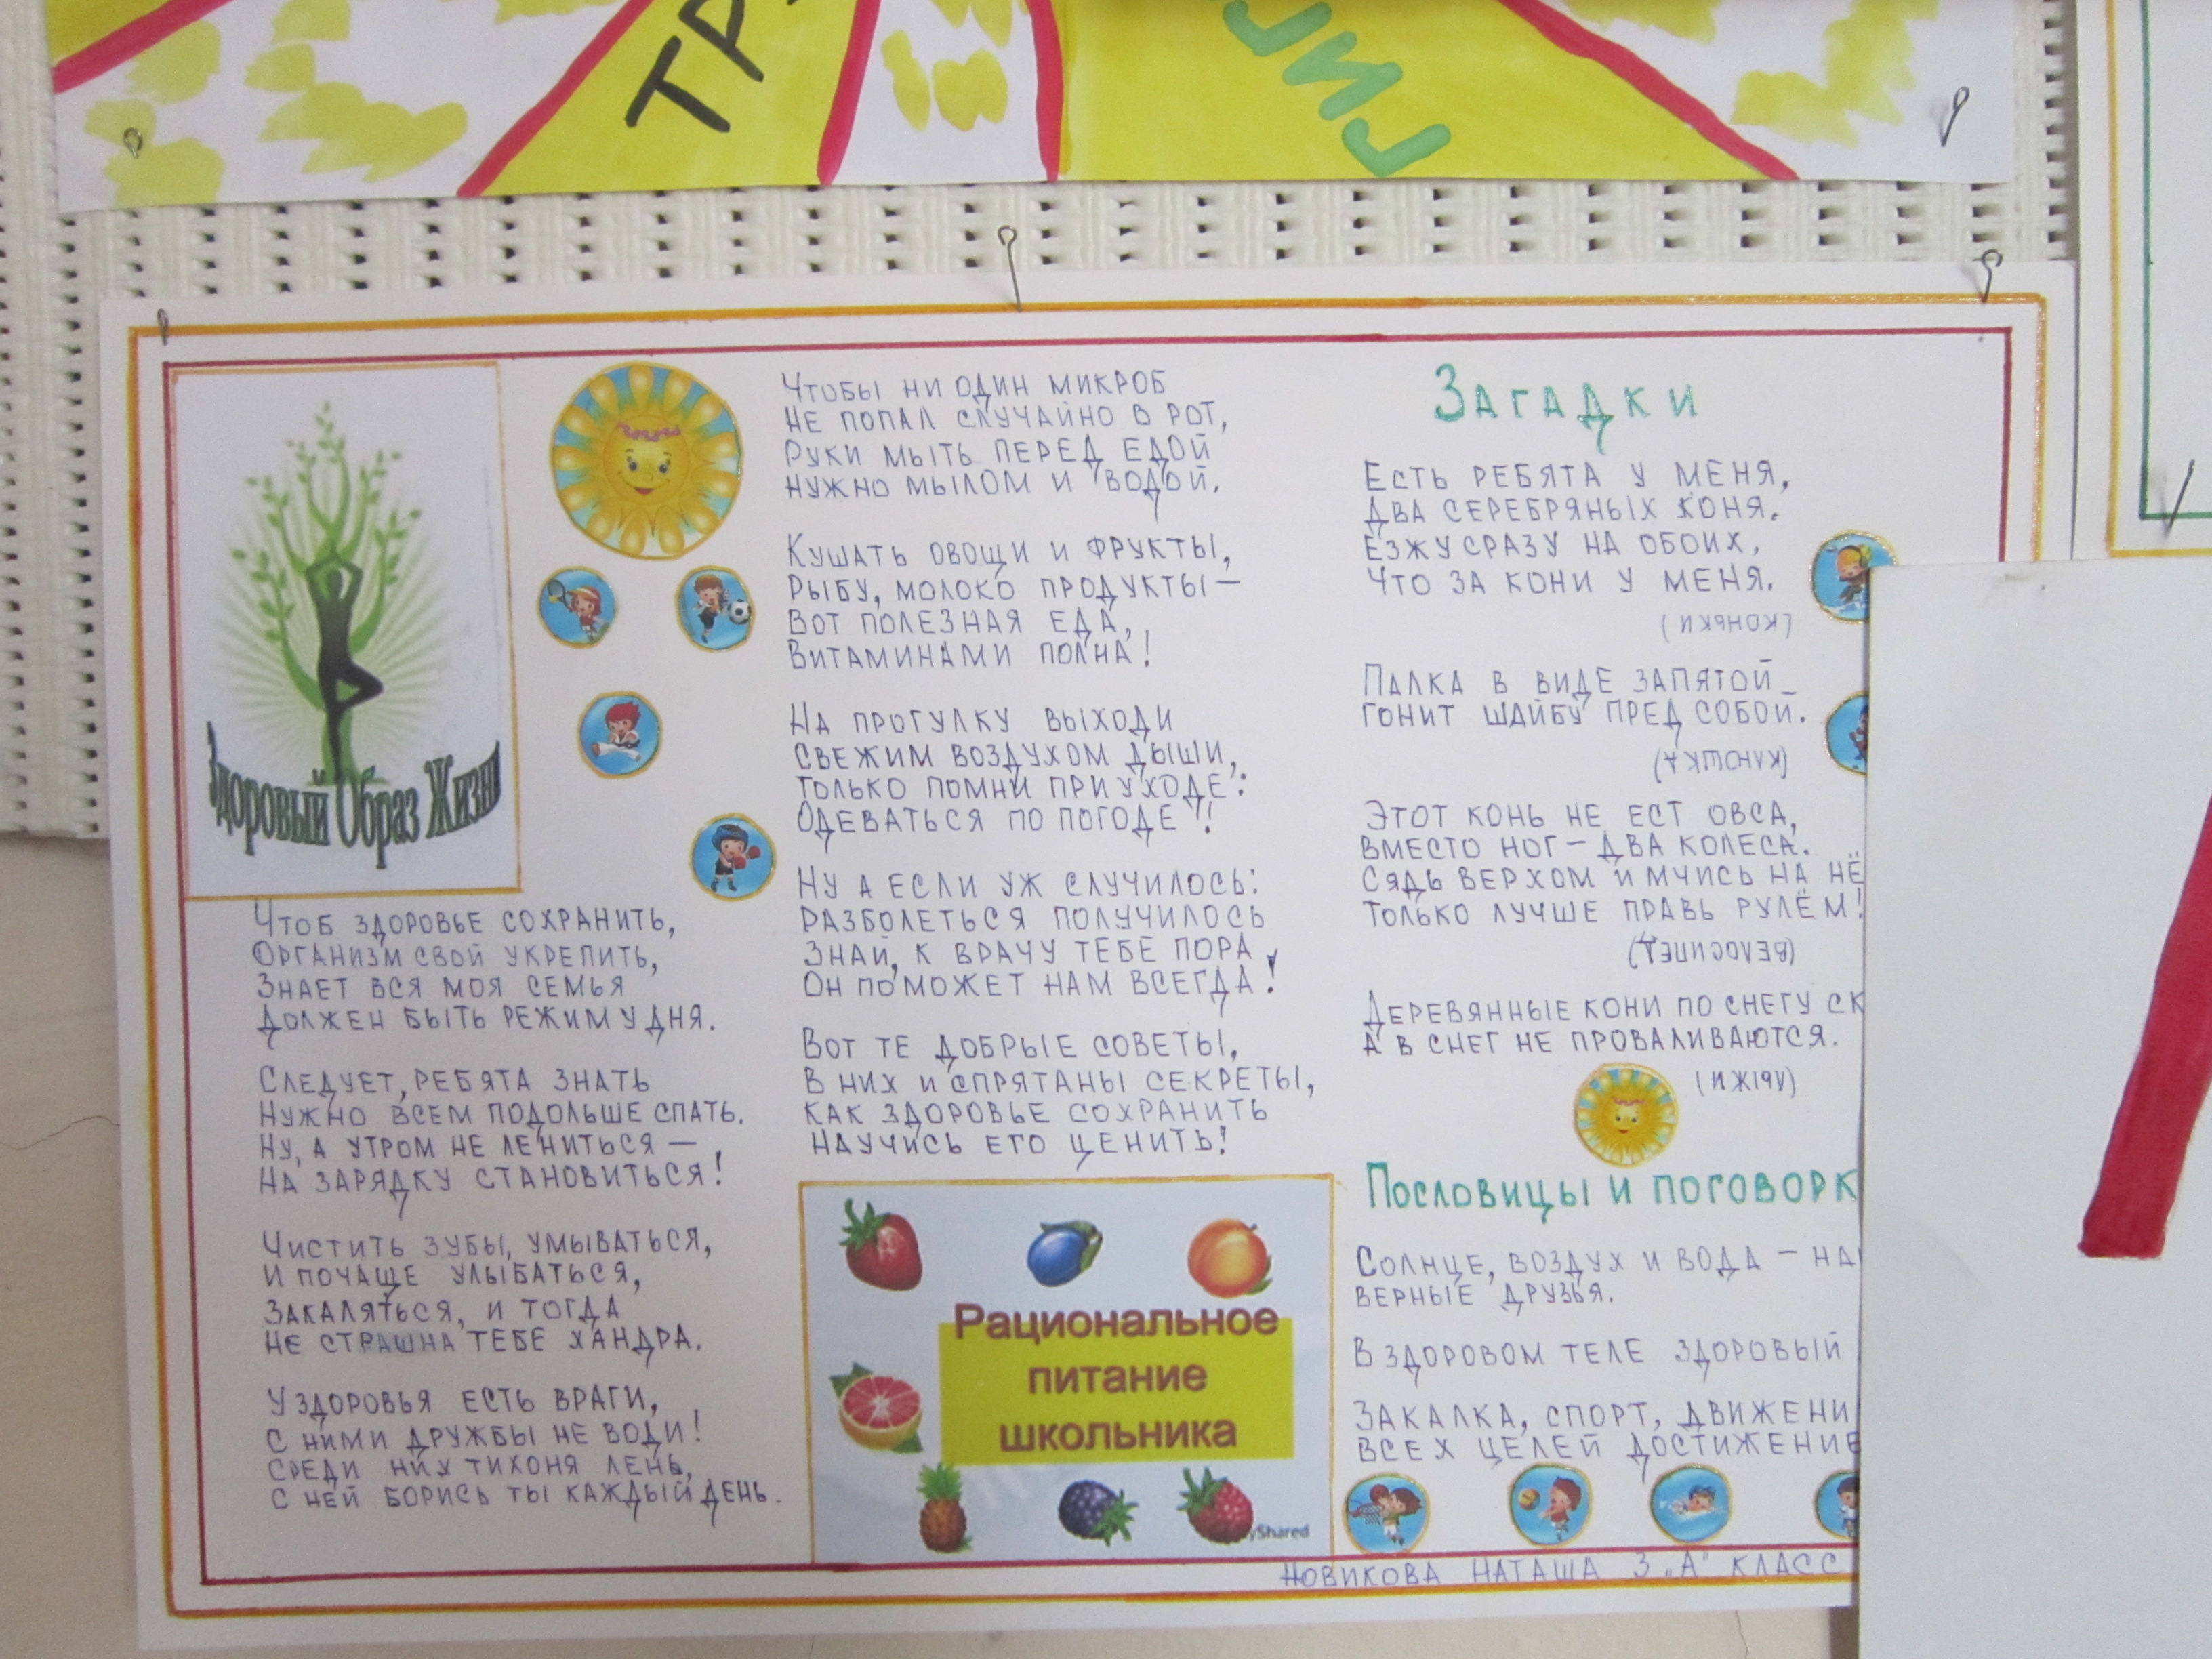 ТР
ЛИГ
Здоровый Образ Жизни
Чтоб здоровье сохранить,
Организм свой укрепить,
Знает вся моя семья
Должен быть режим у дня.
Следует, ребята знать
Нужно всем подольше спать.
Ну, а утром не лениться —
На зарядку становиться!
Чистить зубы, умываться,
И почаще улыбаться,
Закаляться, и тогда
Не страшна тебе хандра.
У здоровья есть враги,
С ними дружбы не води!
Среди них тихоня лень,
С ней борись ты каждый день.
Чтобы ни один микроб
Не попал случайно в рот,
Руки мыть перед едой
Нужно мылом и водой.
Кушать овощи и фрукты,
Рыбу, молоко продукты —
Вот полезная еда,
Витаминами полна!
На прогулку выходи
Свежим воздухом дыши,
Только помни при уходе:
Одеваться по погоде!!
Ну а если уж случилось:
Разболеться получилось
Знай, к врачу тебе пора,
Он поможет нам всегда!
Вот те добрые советы,
В них и спрятаны секреты,
Как здоровье сохранить
Научись его ценить!
Рациональное
питание
школьника
yShared
Загадки
Есть ребята у меня,
Два серебряных коня.
Езжу сразу на обоих,
Что за кони у меня.
(коньки)
Палка в виде запятой
Гонит шайбу пред собой.
(клюшка)
Этот конь не ест овса,
Вместо ног — два колеса.
Сядь верхом и мчись на нё
Только лучше правь рулём!
(велосипед)
Деревянные кони по снегу ск
А в снег не проваливаются.
(лыжи)
Пословицы и поговорк
Солнце, воздух и вода — на
верные друзья.
В здоровом теле здоровый
Закалка, спорт, движени
всех целей достижение
Новикова Наташа 3 „А" класс